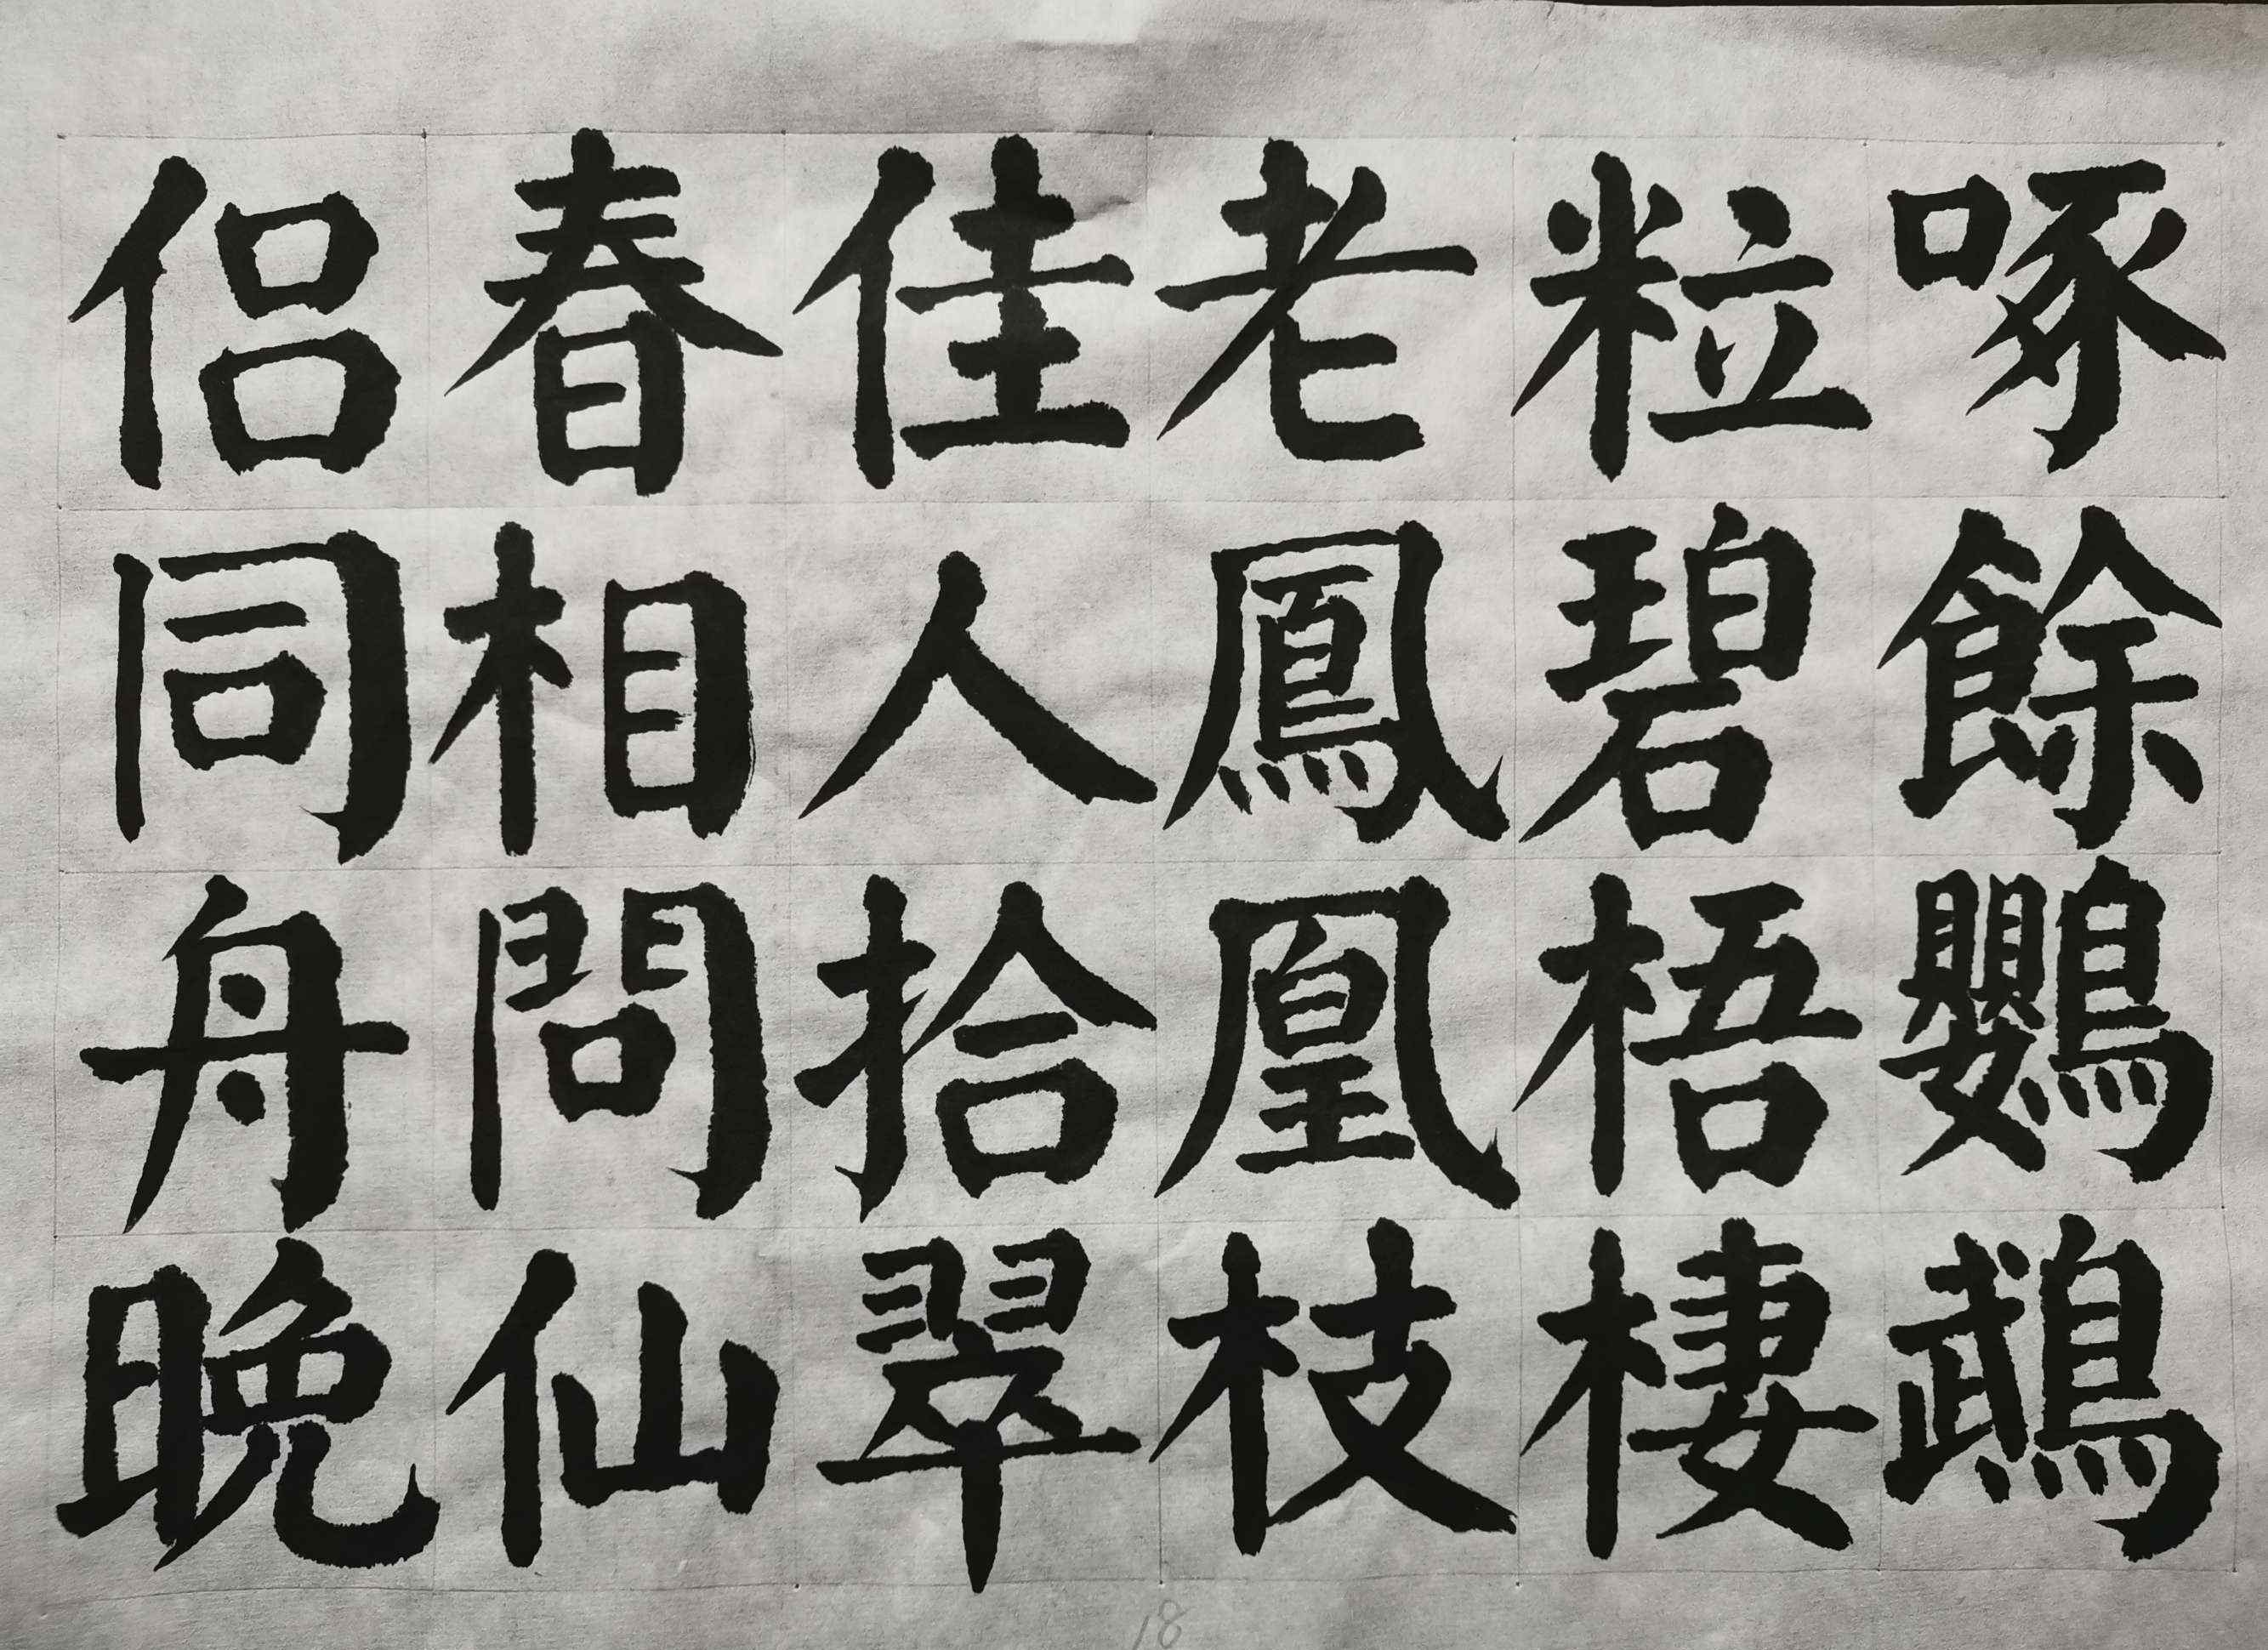 啄餘鸚鵡
粒碧梧棲
老鳳凰枝
佳人拾翠
春相問仙
侣同舟晚
18